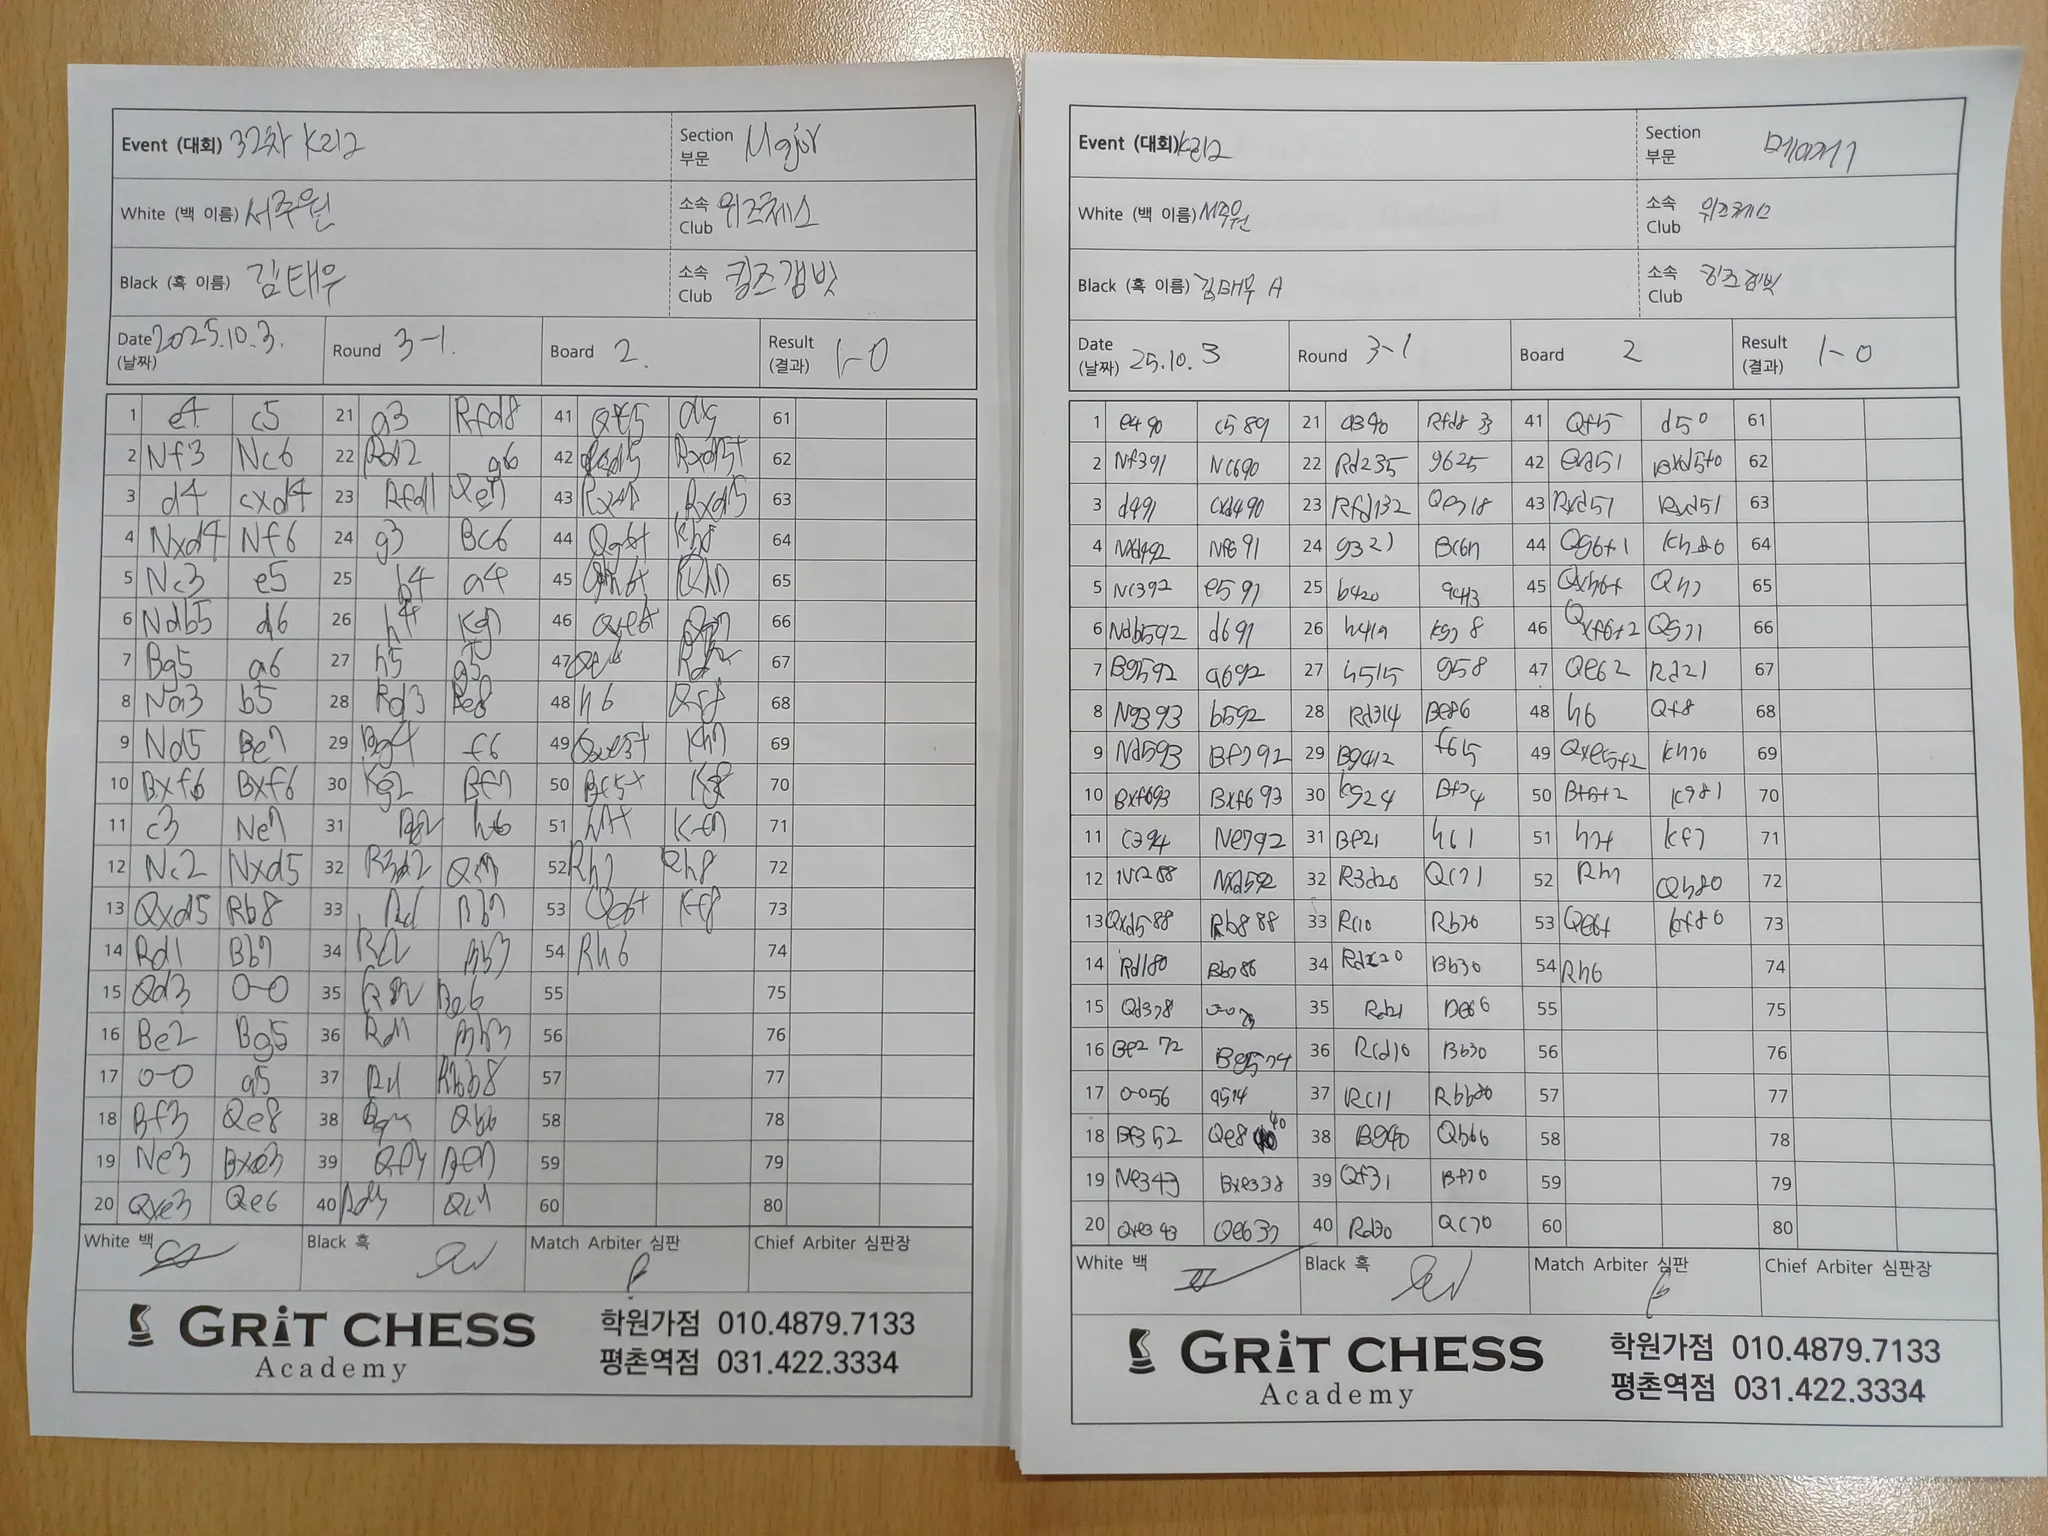 Event (대회) 32차 K리그
Section 부문 Major
White (백 이름) 서주원
소속 Club 위즈체스
Black (흑 이름) 김태우
소속 Club 킹즈갬빗
Date (날짜) 2025.10.3.
Round 3-1.
Board 2.
Result (결과) 1-0
1 e4 c5 21 g3 Rfd8 41 Qf5 61
2 Nf3 Nc6 22 Rd2 g6 42 Rxd5+ 62
3 d4 cxd4 23 Rfd1 Qe7 43 Rxd5 63
4 Nxd4 Nf6 24 g3 Bc6 44 Qg6+ 64
5 Nc3 e5 25 b4 a4 45 65
6 Ndb5 d6 26 h4 Kg7 46 66
7 Bg5 a6 27 h5 g5 47 67
8 Na3 b5 28 Rd3 Be8 48 h6 Qf8 68
9 Nd5 Be7 29 Bg4 f6 49 Qxe5+ Kh7 69
10 Bxf6 Bxf6 30 Kg2 Bf7 50 Bf5+ Kg8 70
11 c3 Ne7 31 h6 51 h7+ Kf7 71
12 Nc2 Nxd5 32 R3d2 Qc7 52 Rh7 Rh8 72
13 Qxd5 Rb8 33 Rb7 53 Qe6+ Kf8 73
14 Rd1 Bb7 34 Bb3 54 Rh6 74
15 Qd3 0-0 35 Be6 55 75
16 Be2 Bg5 36 56 76
17 0-0 a5 37 Rbb8 57 77
18 Bf3 Qe8 38 Qb6 58 78
19 Ne3 Bxe3 39 59 79
20 Qxe3 Qe6 40 60 80
White 백
Black 흑
Match Arbiter 심판
Chief Arbiter 심판장
GRiT CHESS
Academy
학원가점 010.4879.7133
평촌역점 031.422.3334
Event (대회) K리그
Section 부문 메이저
White (백 이름) 서주원
소속 Club 위즈체스
Black (흑 이름) 김태우 A
소속 Club 킹즈갬빗
Date (날짜) 25.10.3
Round 3-1
Board 2
Result (결과) 1-0
1 e4 90 c5 89 21 a3 40 Rfd8 33 41 Qf5 d5 0 61
2 Nf3 91 Nc6 90 22 Rd2 35 g6 25 42 Bxd5+0 62
3 d4 91 cxd4 90 23 Rfd1 32 Qe7 18 43 Rxd51 Rxd51 63
4 Nxd4 92 Nf6 91 24 g3 21 44 Qg6+1 64
5 Nc3 92 e5 91 25 b4 20 a4 13 45 Qxh6+ Qh7 65
6 Ndb5 92 d6 91 26 h4 19 Kg7 8 46 Qxf6+2 Qg71 66
7 Bg5 92 a6 92 27 h5 15 g5 8 47 Qe6 2 Rd21 67
8 Na3 93 b5 92 28 Rd3 14 Be8 6 48 h6 Qf8 68
9 Nd5 93 Be7 92 29 Bg4 12 f6 5 49 Qxe5+2 Kh70 69
10 Bxf6 93 Bxf6 93 30 Kg2 4 Bf7 4 50 Bf5+2 Kg81 70
11 c3 94 Ne7 92 31 Bf21 h6 1 51 h7+ Kf7 71
12 Nc2 88 Nxd5 92 32 R3d20 Qc71 52 Rh7 Qh80 72
13 Qxd5 88 Rb8 88 33 Rc10 Rb70 53 Qe6+ Kf80 73
14 Rd1 80 Bb7 86 34 Bb30 54 Rh6 74
15 Qd3 78 35 Be6 0 55 75
16 Be2 72 Bg5 74 36 Rcd10 Bb30 56 76
17 0-0 56 a5 14 37 Rc11 Rbb80 57 77
18 Bf3 52 Qe8 40 38 Bg40 Qb66 58 78
19 Ne3 43 Bxe3 38 39 Qf31 Bf70 59 79
20 Qxe3 43 Qe6 37 40 Rd30 Qc70 60 80
White 백
Black 흑
Match Arbiter 심판
Chief Arbiter 심판장
GRiT CHESS
Academy
학원가점 010.4879.7133
평촌역점 031.422.3334